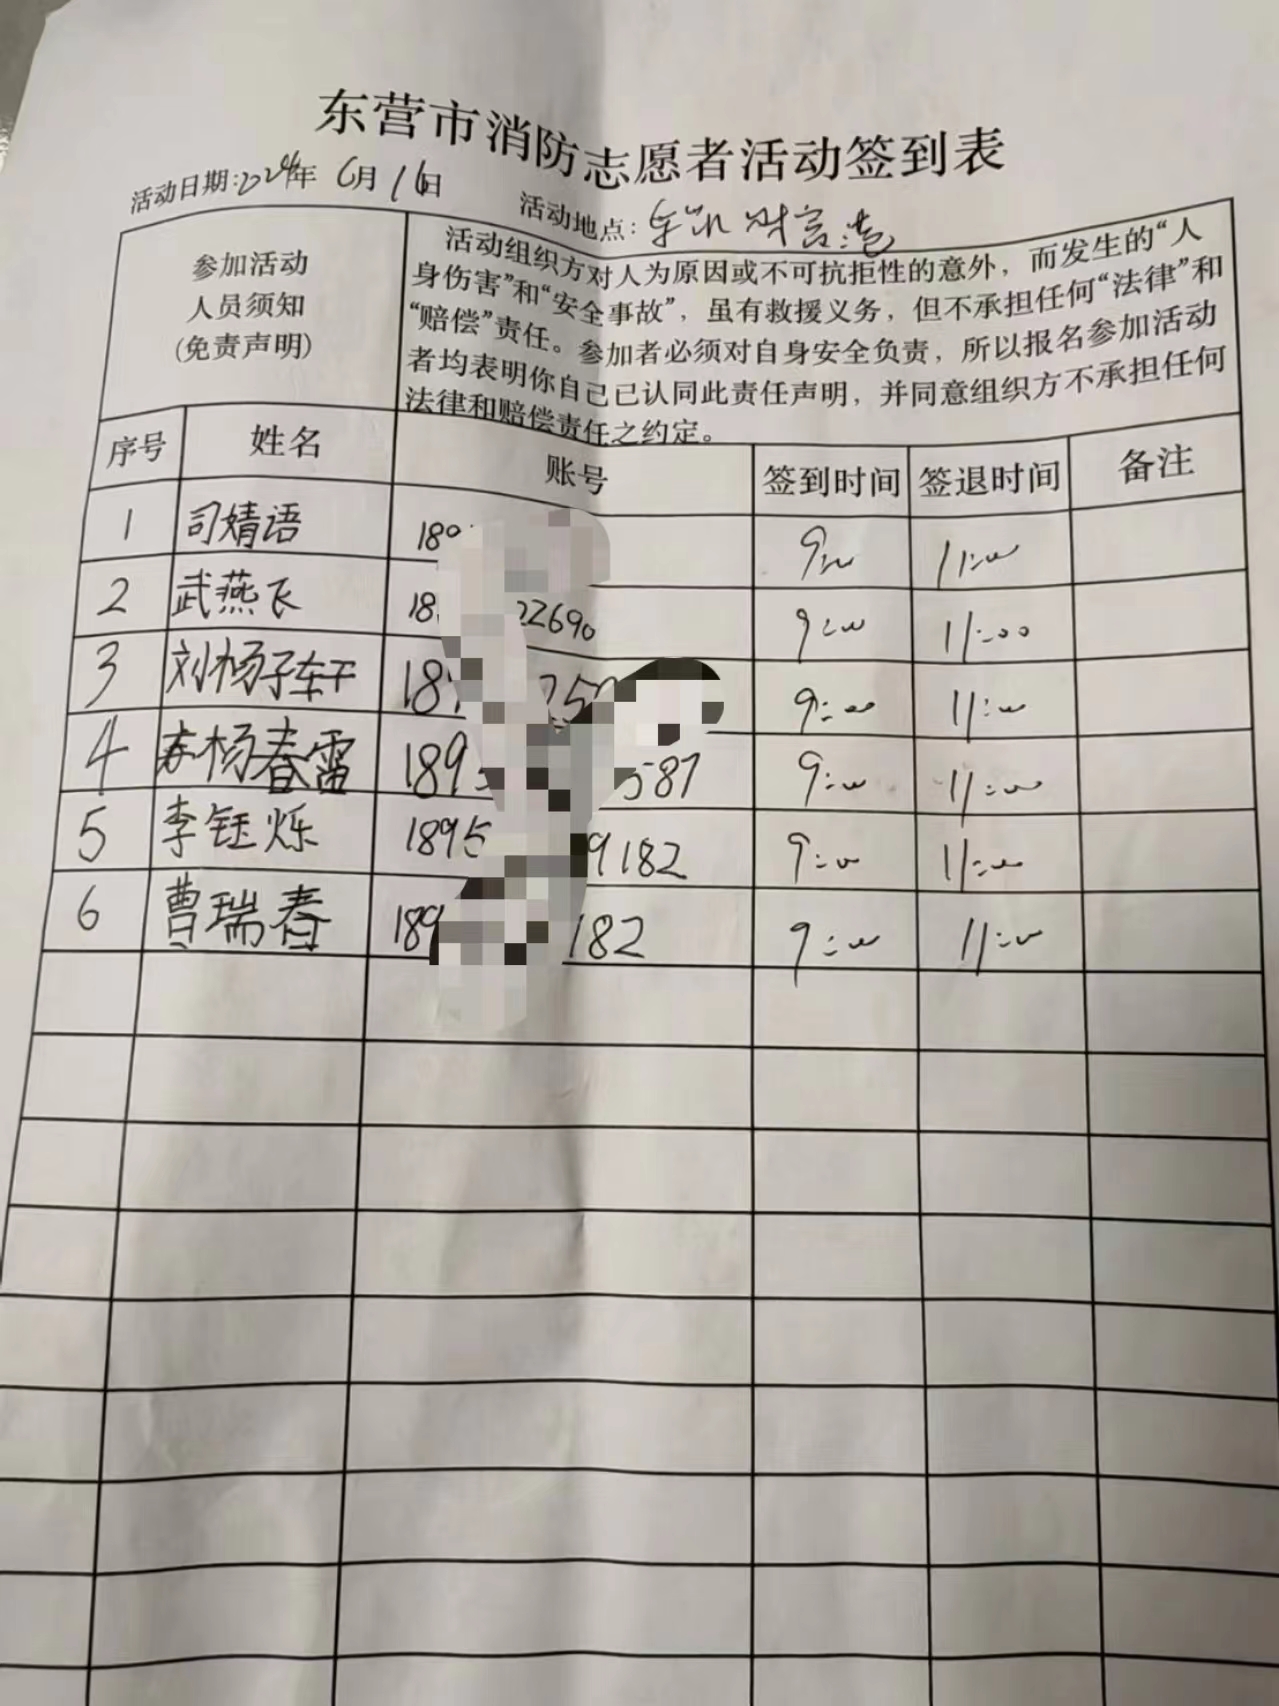 东营市消防志愿者活动签到表
活动日期:2024年 6月16日 活动地点:东凯财富港
参加活动
人员须知
(免责声明)
活动组织方对人为原因或不可抗拒性的意外，而发生的“人
身伤害”和“安全事故”，虽有救援义务，但不承担任何“法律”和
“赔偿”责任。参加者必须对自身安全负责，所以报名参加活动
者均表明你自己已认同此责任声明，并同意组织方不承担任何
法律和赔偿责任之约定。
序号 姓名 账号 签到时间 签退时间 备注
1 司婧语 189 9:00 11:00
2 武燕飞 18 22690 9:00 11:00
3 刘杨子轩 18 9:00 11:00
4 杨春雷 1895 587 9:00 11:00
5 李钰烁 1895 9182 9:00 11:00
6 曹瑞春 189 182 9:00 11:00